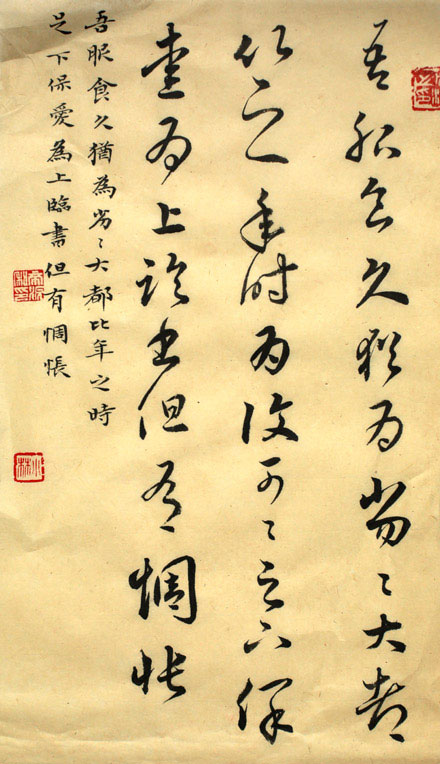 吾服食久猶為劣〻大都
比之年時為復可〻足下保
愛為上臨書但有惆悵
吾服食久猶為劣〻大都比年之時
足下保愛為上臨書但有惆悵